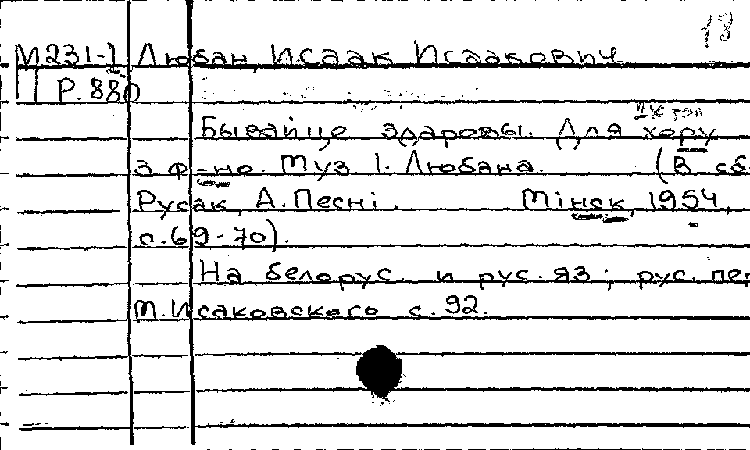 18
М231-1 Любан, Исаак Исаакович
2
Р.880
2х гол
Бывайце здаровы. Для хору
з ф-но. Муз І. Любана. (В сб.
Русак, А. Песні. Мінск, 1954,
с.69-70).
На белорус. и рус. яз; рус. пер
М. Исаковского с. 92.